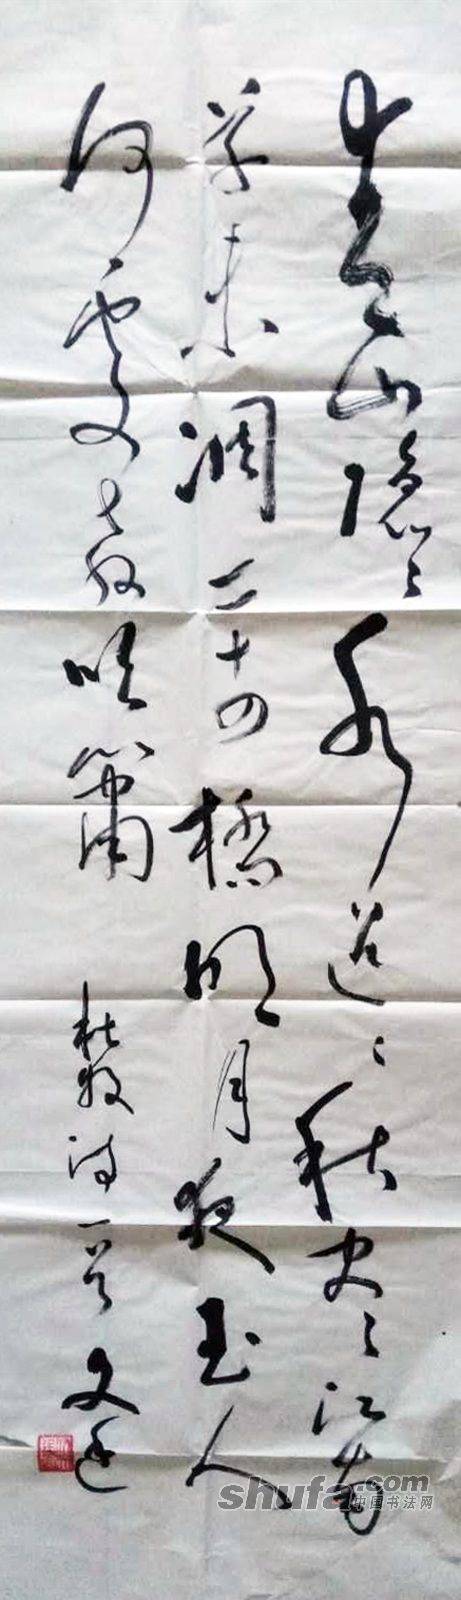 青山隱〻水迢〻秋尽江南
草未凋二十四橋明月夜玉人
何處教吹簫 杜牧诗一首 文
shufa.com
中国书法网